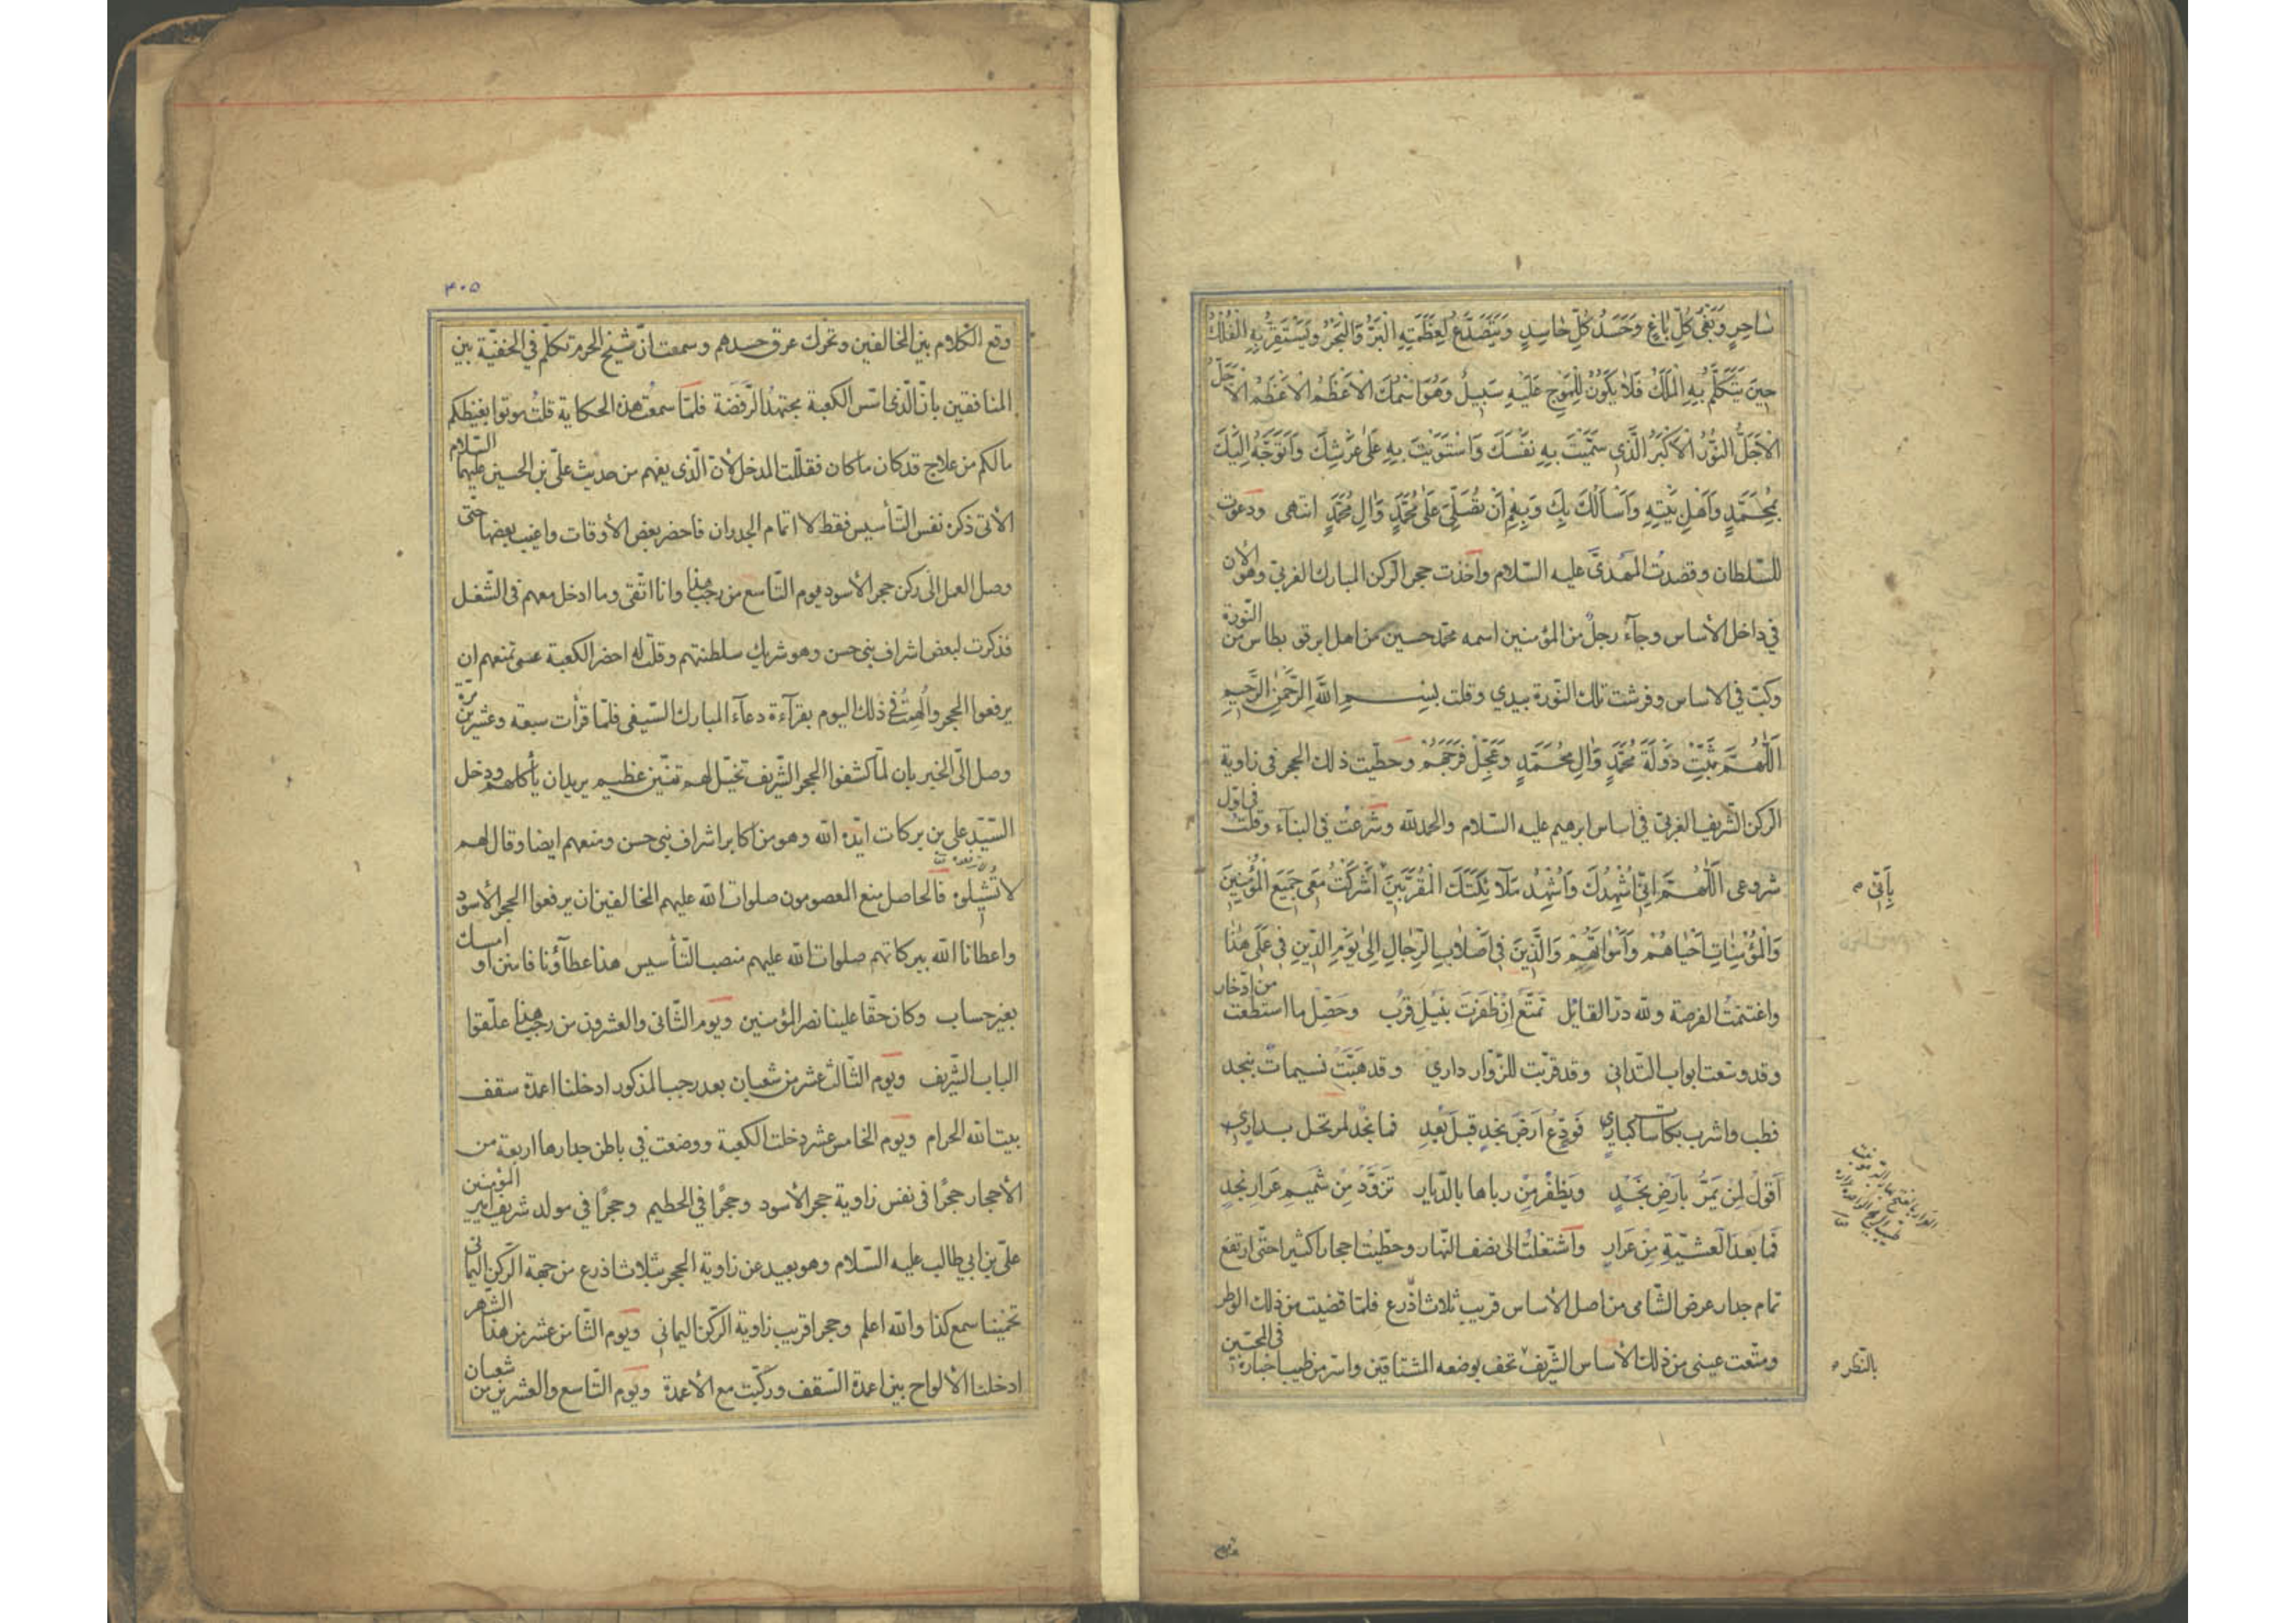 ساحِرٍ وَبَغْىُ كُلِّ باغٍ وَحَسَدُ كُلِّ حاسِدٍ وَيَتَصَدَّعُ لِعَظَمَتِهِ الْبَرُّ وَالْبَحْرُ وَيَسْتَقِرُّ بِهِ الْفُلْكُ
حينَ يَتَكَلَّمُ بِهِ الْمَلَكُ فَلا يَكُونُ لِلْمَوْجِ عَلَيْهِ سَبيلٌ وَهُوَ اسْمُكَ الْاَعْظَمُ الْاَعْظَمُ الْاَجَلُّ
الْاَجَلُّ النُّورُ الْاَكْبَرُ الَّذي سَمَّيْتَ بِهِ نَفْسَكَ وَاسْتَوَيْتَ بِهِ عَلىٰ عَرْشِكَ وَاَتَوَجَّهُ اِلَيْكَ
بِمُحَمَّدٍ وَاَهْلِ بَيْتِهِ وَاَسْأَلُكَ بِكَ وَبِهِمْ اَنْ تُصَلِّىَ عَلىٰ مُحَمَّدٍ وَاٰلِ مُحَمَّدٍ انتهى ودعوت
للسّلطان وقصدت المَهدىَّ عليه السّلام وأخذت حجر الركن المبارك الغربىّ وهو الآن
في داخل الأساس وجآء رجلٌ من المؤمنين اسمه محمّد حسين من اهل ابرقو بطاس من النّورة
وكبّ في الاساس وفرشت تلك النّورة بيدي وقلت بِسْــمِ اللّهِ الرَّحْمٰنِ الرَّحيمِ
اَللّٰهُمَّ ثَبِّتْ دَوْلَةَ مُحَمَّدٍ وَاٰلِ مُحَمَّدٍ وَعَجِّلْ فَرَجَهُمْ وحطّيت ذلك الحجر فى زاوية
الركن الشّريف الغربىّ في اساس ابرهيم عليه السّلام والحمد للّه وشرعْت في البنآء وقلتُ في اوّل
شروعى اَللّٰهُمَّ اِنّي اُشْهِدُكَ وَاُشْهِدُ مَلآئِكَتَكَ الْمُقَرَّبينَ اَشْرَكْتُ مَعى جَميعَ الْمُؤْمِنينَ
بِاَنّي ص
وَالْمُؤْمِناتِ اَحْياهُمْ وَاَمْواتَهُمْ وَالَّذينَ في اَصْلابِ الرِّجالِ اِلىٰ يَوْمِ الدّينِ في عَمَلى هٰذا
واغتنمتُ الفرصة وللّه درّ القائل تَمَتَّعْ اِنْ ظَفَرْتَ بنَيْلِ قُرْبٍ وحَصّل ما استطعت من ادّخار
وقد وسّعت ابواب التّدانى وقد قرّبت للزّوار داري وقد هَبَّتْ نسيمات بنجد
فطب واشرب بكاسات كباري فَوَدِّعْ اَرضَ نجدٍ قبلَ بُعْدٍ فما نجْد لمرتحل بداري
أقولُ لمن يَمرُّ بارض نجْدٍ ويَظفرُ من رباها بالدّيار تَزَوَّدْ مِنْ شَميمِ عَرارِ نجْدٍ
فَما بَعدَ العشيّةِ مِن عَرارِ واشتغلت الى نصف النّهار وحطّيت احجارا كثيرا حتّى ارتفع
تمام جدار عرض الشّامى من اصل الأساس قريب ثلاث اذْرع فلمّا قضيت من ذلك الوطر
ومتّعت عينى من ذلك الأساس الشّريف تحف بوضعه المشتاقين واسر من طيب اخباره في المحبّين
بالنّظر ص
٣٠٥
وقع الكلام بين المخالفين وتحرّك عرق حسدهم وسمعت انّ شيخ الحرم تكلّم في الحنفيّة بين
المنافقين بانّ الّذى اسّس الكعبة مجتهدُ الرَّفَضَة فلمّا سمعتُ هذه الحكاية قلتُ موتوا بغيظكم
مالكم من علاج قد كان ما كان فقلّلت المدخل لأنّ الّذى يفهم من حديث علىّ بن الحسين عليهما السّلام
الآتى ذكره نفس التّأسيس فقط لا اتمام الجدران فاحضر بعض الأوقات واغيب بعضها حتّى
وصل العمل الى ركن حجر الأسود يوم التّاسع من رجب هذا وانا اتّقى وما ادخل معهم فى الشّغل
فذكرت لبعض اشراف بنى حسن وهو شريك سلطنتهم وقلت له احضر الكعبة عسى تمنعهم ان
يرفعوا الحجر واُلهِمْتُ في ذلك اليوم بقرآءة دعآء المبارك السّيفى فلمّا قرأت سبعة وعشرين مرّة
وصل الىّ الخبر بان لمّا كشفوا الحجر الشّريف تخيّل لهم تنّين عظيم يريد ان يأكلهم ودخل
السّيّد على بن بركات ايّده اللّه وهو من اكابر اشراف بنى حسن ومنعهم ايضا وقال لهم
لا تُشيلوه فالحاصل منع المعصومون صلوات اللّه عليهم المخالفين ان يرفعوا الحجر الأسود
واعطانا اللّه ببركاتهم صلوات اللّه عليهم منصب التّأسيس هذا عطآؤنا فامنن او امسك
بغير حساب وكان حقّا علينا نصر المؤمنين ويوم الثّانى والعشرون من رجب هذا علّقوا
الباب الشّريف ويوم الثّالث عشر من شعبان بعد رجب المذكور ادخلنا اعمدة سقف
بيت اللّه الحرام ويوم الخامس عشر دخلت الكعبة ووضعت في باطن جدارها اربعة من
الأحجار حجرًا فى نفس زاوية حجر الأسود وحجرًا في الحطيم وحجرًا في مولد شريف امير المؤمنين
علىّ بن ابي طالب عليه السّلام وهو بعيد عن زاوية الحجر بثلاث اذرع من جهة الركن اليمانى
تخمينا سمع كذا واللّه اعلم وحجرا قريب زاوية الركن اليمانى ويوم الثّامن عشر من هذا الشّهر
ادخلنا الألواح بين اعمدة السّقف وركّبت مع الأعمدة ويوم التّاسع والعشرين من شعبان